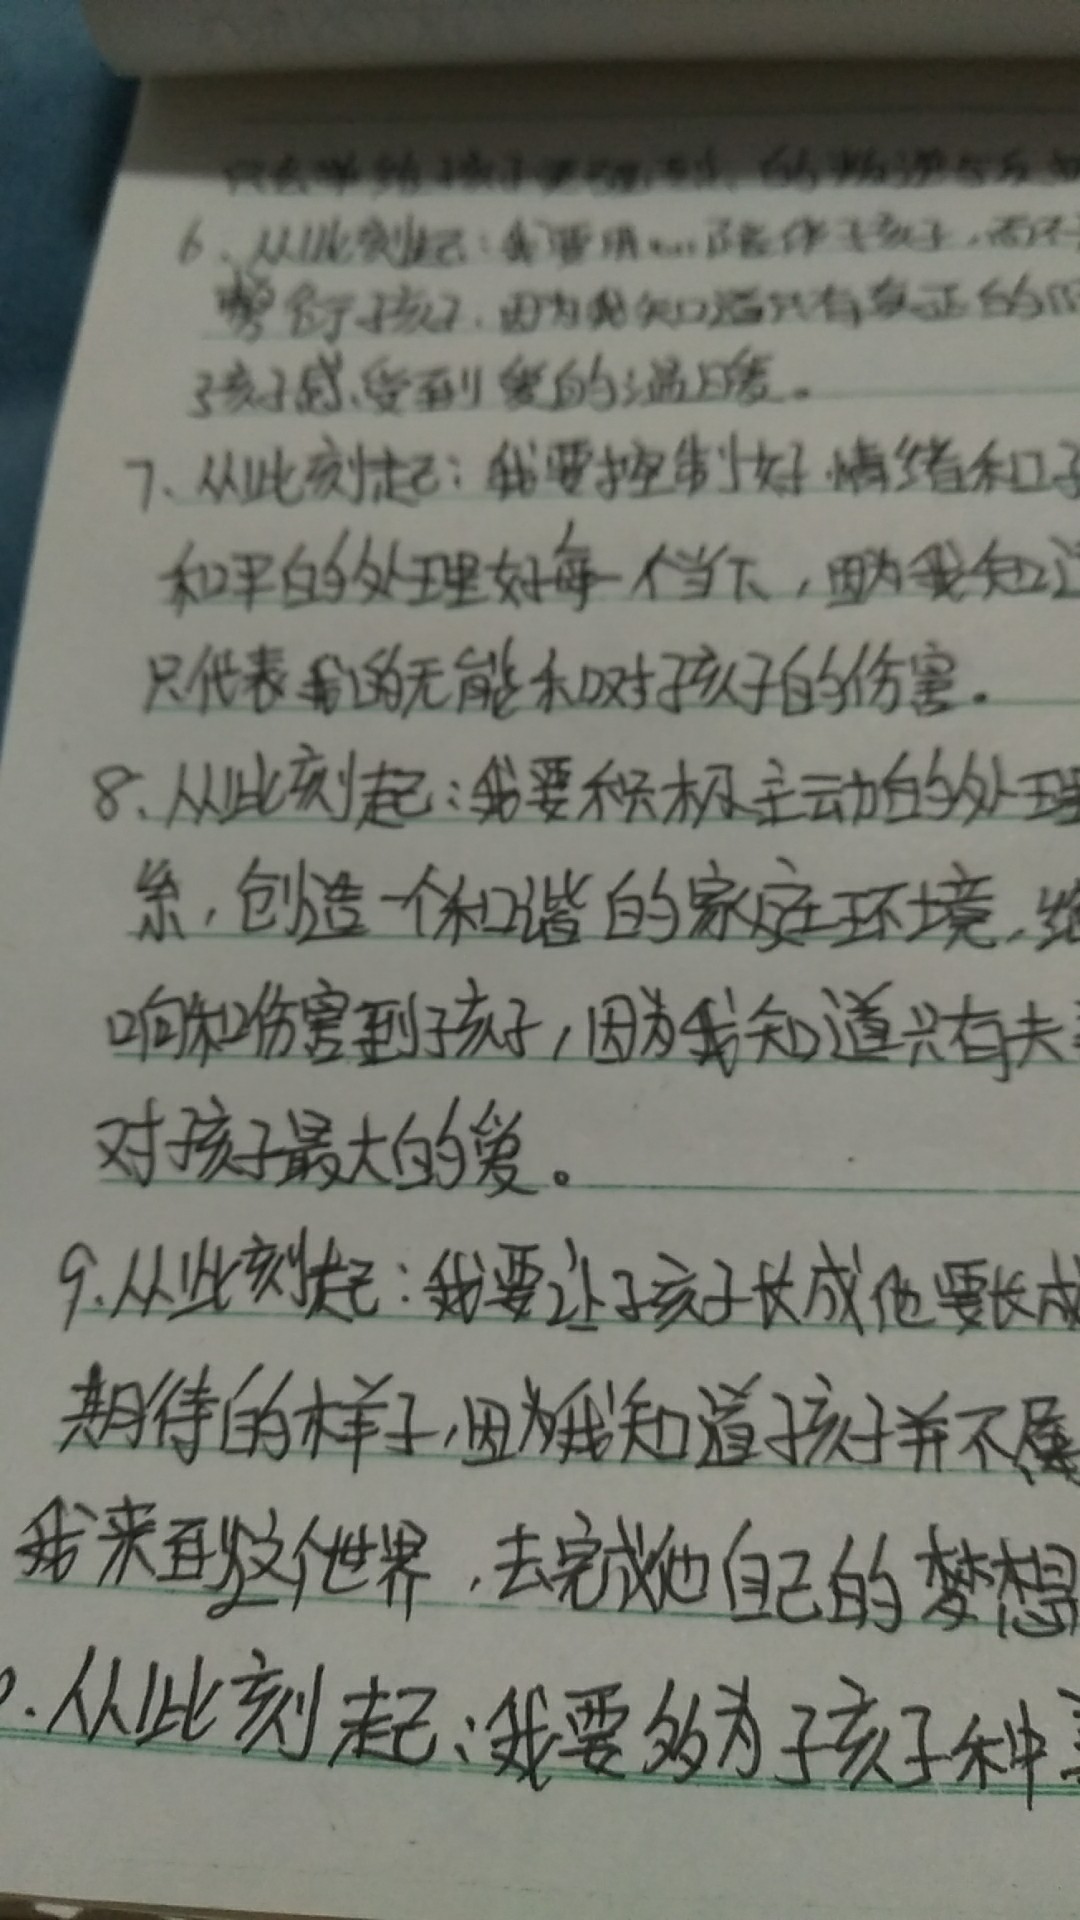 6、从此刻起：我要用心陪伴孩子，而不
孩子，因为我知道只有真正的
孩子感受到爱的温暖。
7、从此刻起：我要控制好情绪和
和平的处理好每一个当下，因为我知道
只代表我的无能和对孩子的伤害。
8、从此刻起：我要积极主动的处理
系，创造一个和谐的家庭环境，绝
响和伤害到孩子，因为我知道只有夫
对孩子最大的爱。
9.从此刻起：我要让孩子长成他要长成
期待的样子，因为我知道孩子并不属
我来到这个世界，去完成他自己的梦想
.从此刻起：我要多为孩子种